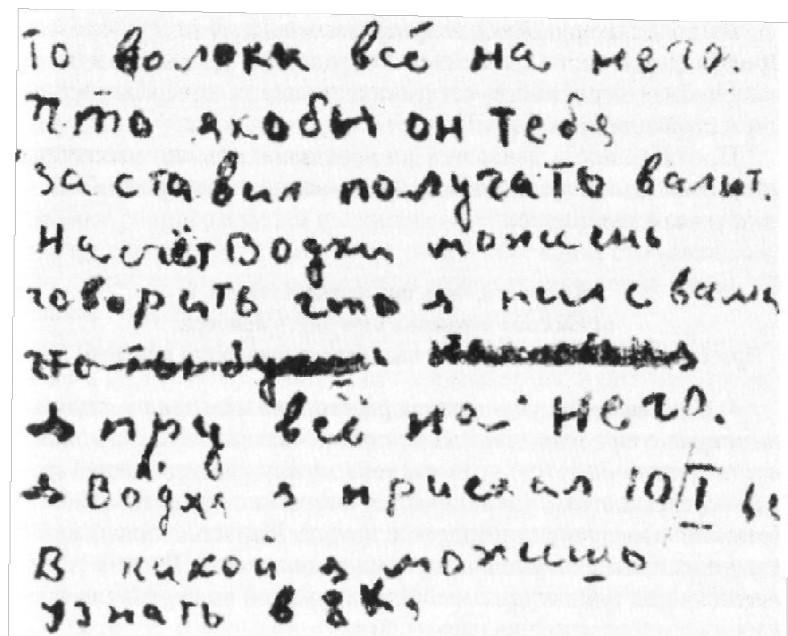 То волоки всё на него.
Что якобы он тебя
заставил получать валют.
Насчёт Водхи можешь
говорить что я пил с вами
что
→ пру всё на него.
→ Водхя я приехал 19/I
В какой я можешь
узнать в ак,